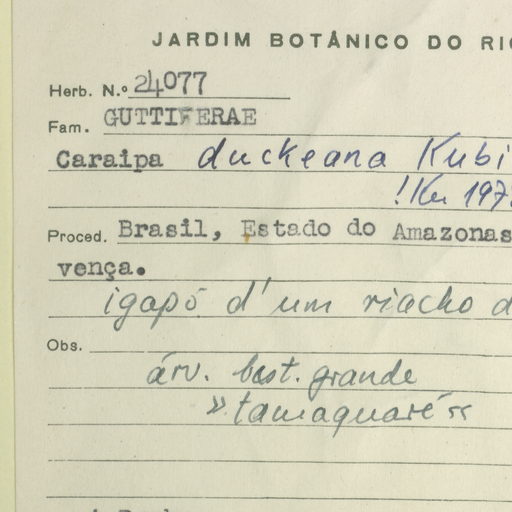 JARDIM BOTÂNICO DO RIO
Herb. N.º 24077
Fam. GUTTIFERAE
Caraipa duckeana Kubi
!Ku 197
Proced. Brasil, Estado do Amazonas
vença.
igapó d'um riacho d
Obs.
árv. bast. grande
» tamaquaré «